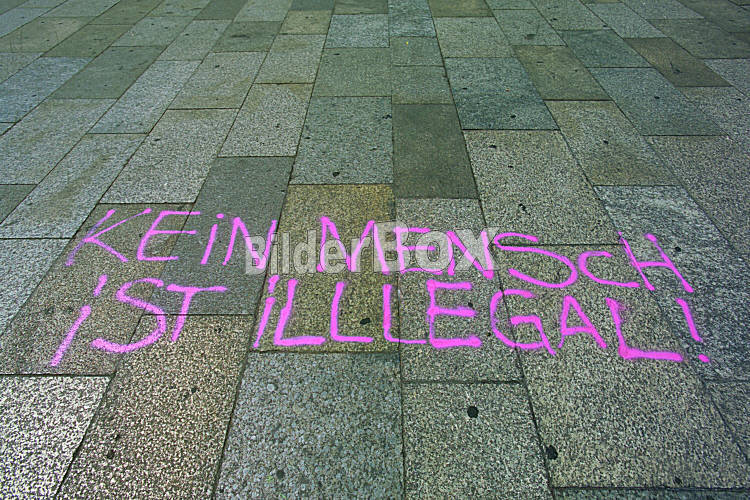 KEiN MENScH
BilderBOX
iST iLLLEGAL!